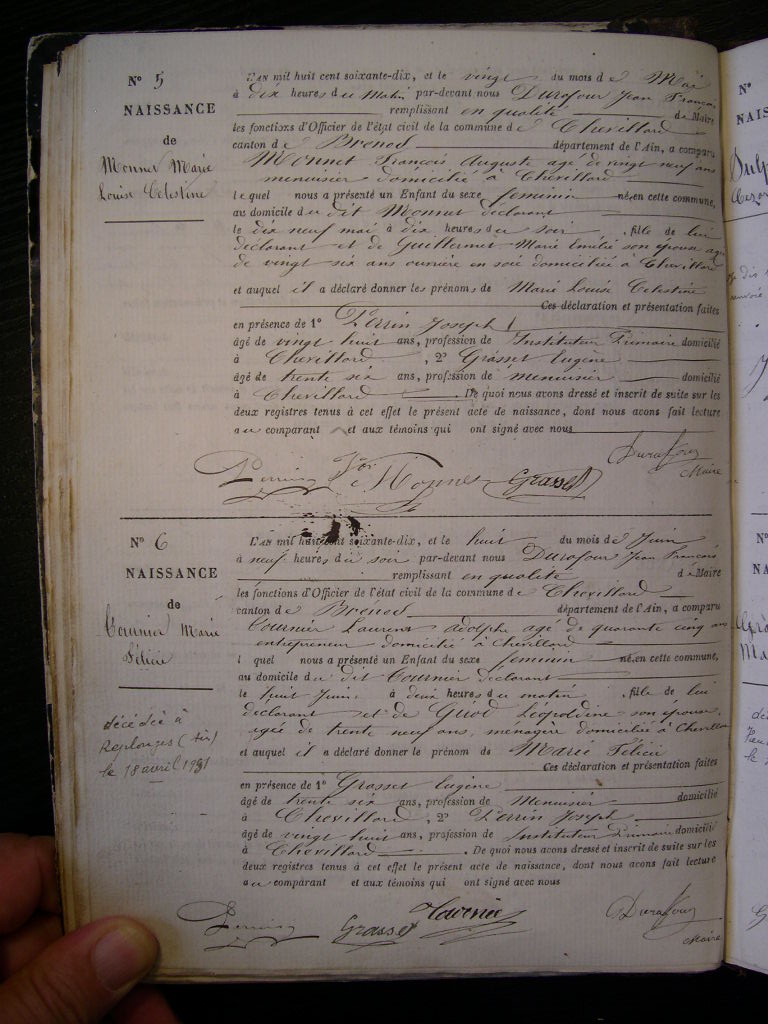 N° 5
NAISSANCE
de
Monnet Marie
Louise Celestine
L'AN mil huit cent soixante-dix, et le vingt du mois de Mai
à dix heures du Matin par-devant nous Durafour Jean François
remplissant en qualité de Maire
les fonctions d'Officier de l'état civil de la commune de Chevillard
canton de Brenod département de l'Ain, a comparu
Monnet François Auguste agé de vingt neuf ans
menuisier domicilié à Chevillard
lequel nous a présenté un Enfant du sexe feminin né, en cette commune,
au domicile du dit Monnet declarant
le dix neuf mai à dix heures du soir, fille de lui
declarant et de Guillermet Marie Emélie son épouse agée
de vingt six ans ouvrière en soie domiciliée à Chevillard
et auquel il a déclaré donner les prénoms de Marie Louise Celestine
Ces déclaration et présentation faites
en présence de 1° Perrin Joseph
âgé de vingt huit ans, profession de Instituteur Primaire domicilié
à Chevillard, 2° Grasset Eugène
âgé de trente six ans, profession de menuisier domicilié
à Chevillard. De quoi nous avons dressé et inscrit de suite sur les
deux registres tenus à cet effet le présent acte de naissance, dont nous avons fait lecture
au comparant et aux témoins qui ont signé avec nous
Durafour
Perrin Monnet Grasset Maire
N° 6
NAISSANCE
de
Tournier Marie
Félicie
décédée à
Replonges (Ain)
le 18 avril 1931
L'AN mil huit cent soixante-dix, et le huit du mois de Juin
à neuf heures du soir par-devant nous Durafour Jean François
remplissant en qualité de Maire
les fonctions d'Officier de l'état civil de la commune de Chevillard
canton de Brenod département de l'Ain, a comparu
Tournier Laurent Adolphe agé de quarante cinq ans
entrepreneur domicilié à Chevillard
l quel nous a présenté un Enfant du sexe feminin né, en cette commune,
au domicile du dit Tournier declarant
le huit Juin, à deux heures du matin, fille de lui
declarant et de Girod Léopoldine son épouse,
agée de trente neuf ans, ménagère domiciliée à Chevillard
et auquel il a déclaré donner le prénom de Marie Félicie
Ces déclaration et présentation faites
en présence de 1° Grasset Eugène
âgé de trente six ans, profession de Menuisier domicilié
à Chevillard, 2° Perrin Joseph
âgé de vingt huit ans, profession de Instituteur Primaire domicilié
à Chevillard. De quoi nous avons dressé et inscrit de suite sur les
deux registres tenus à cet effet le présent acte de naissance, dont nous avons fait lecture
au comparant et aux témoins qui ont signé avec nous
Perrin Grasset Tournier Durafour
Maire